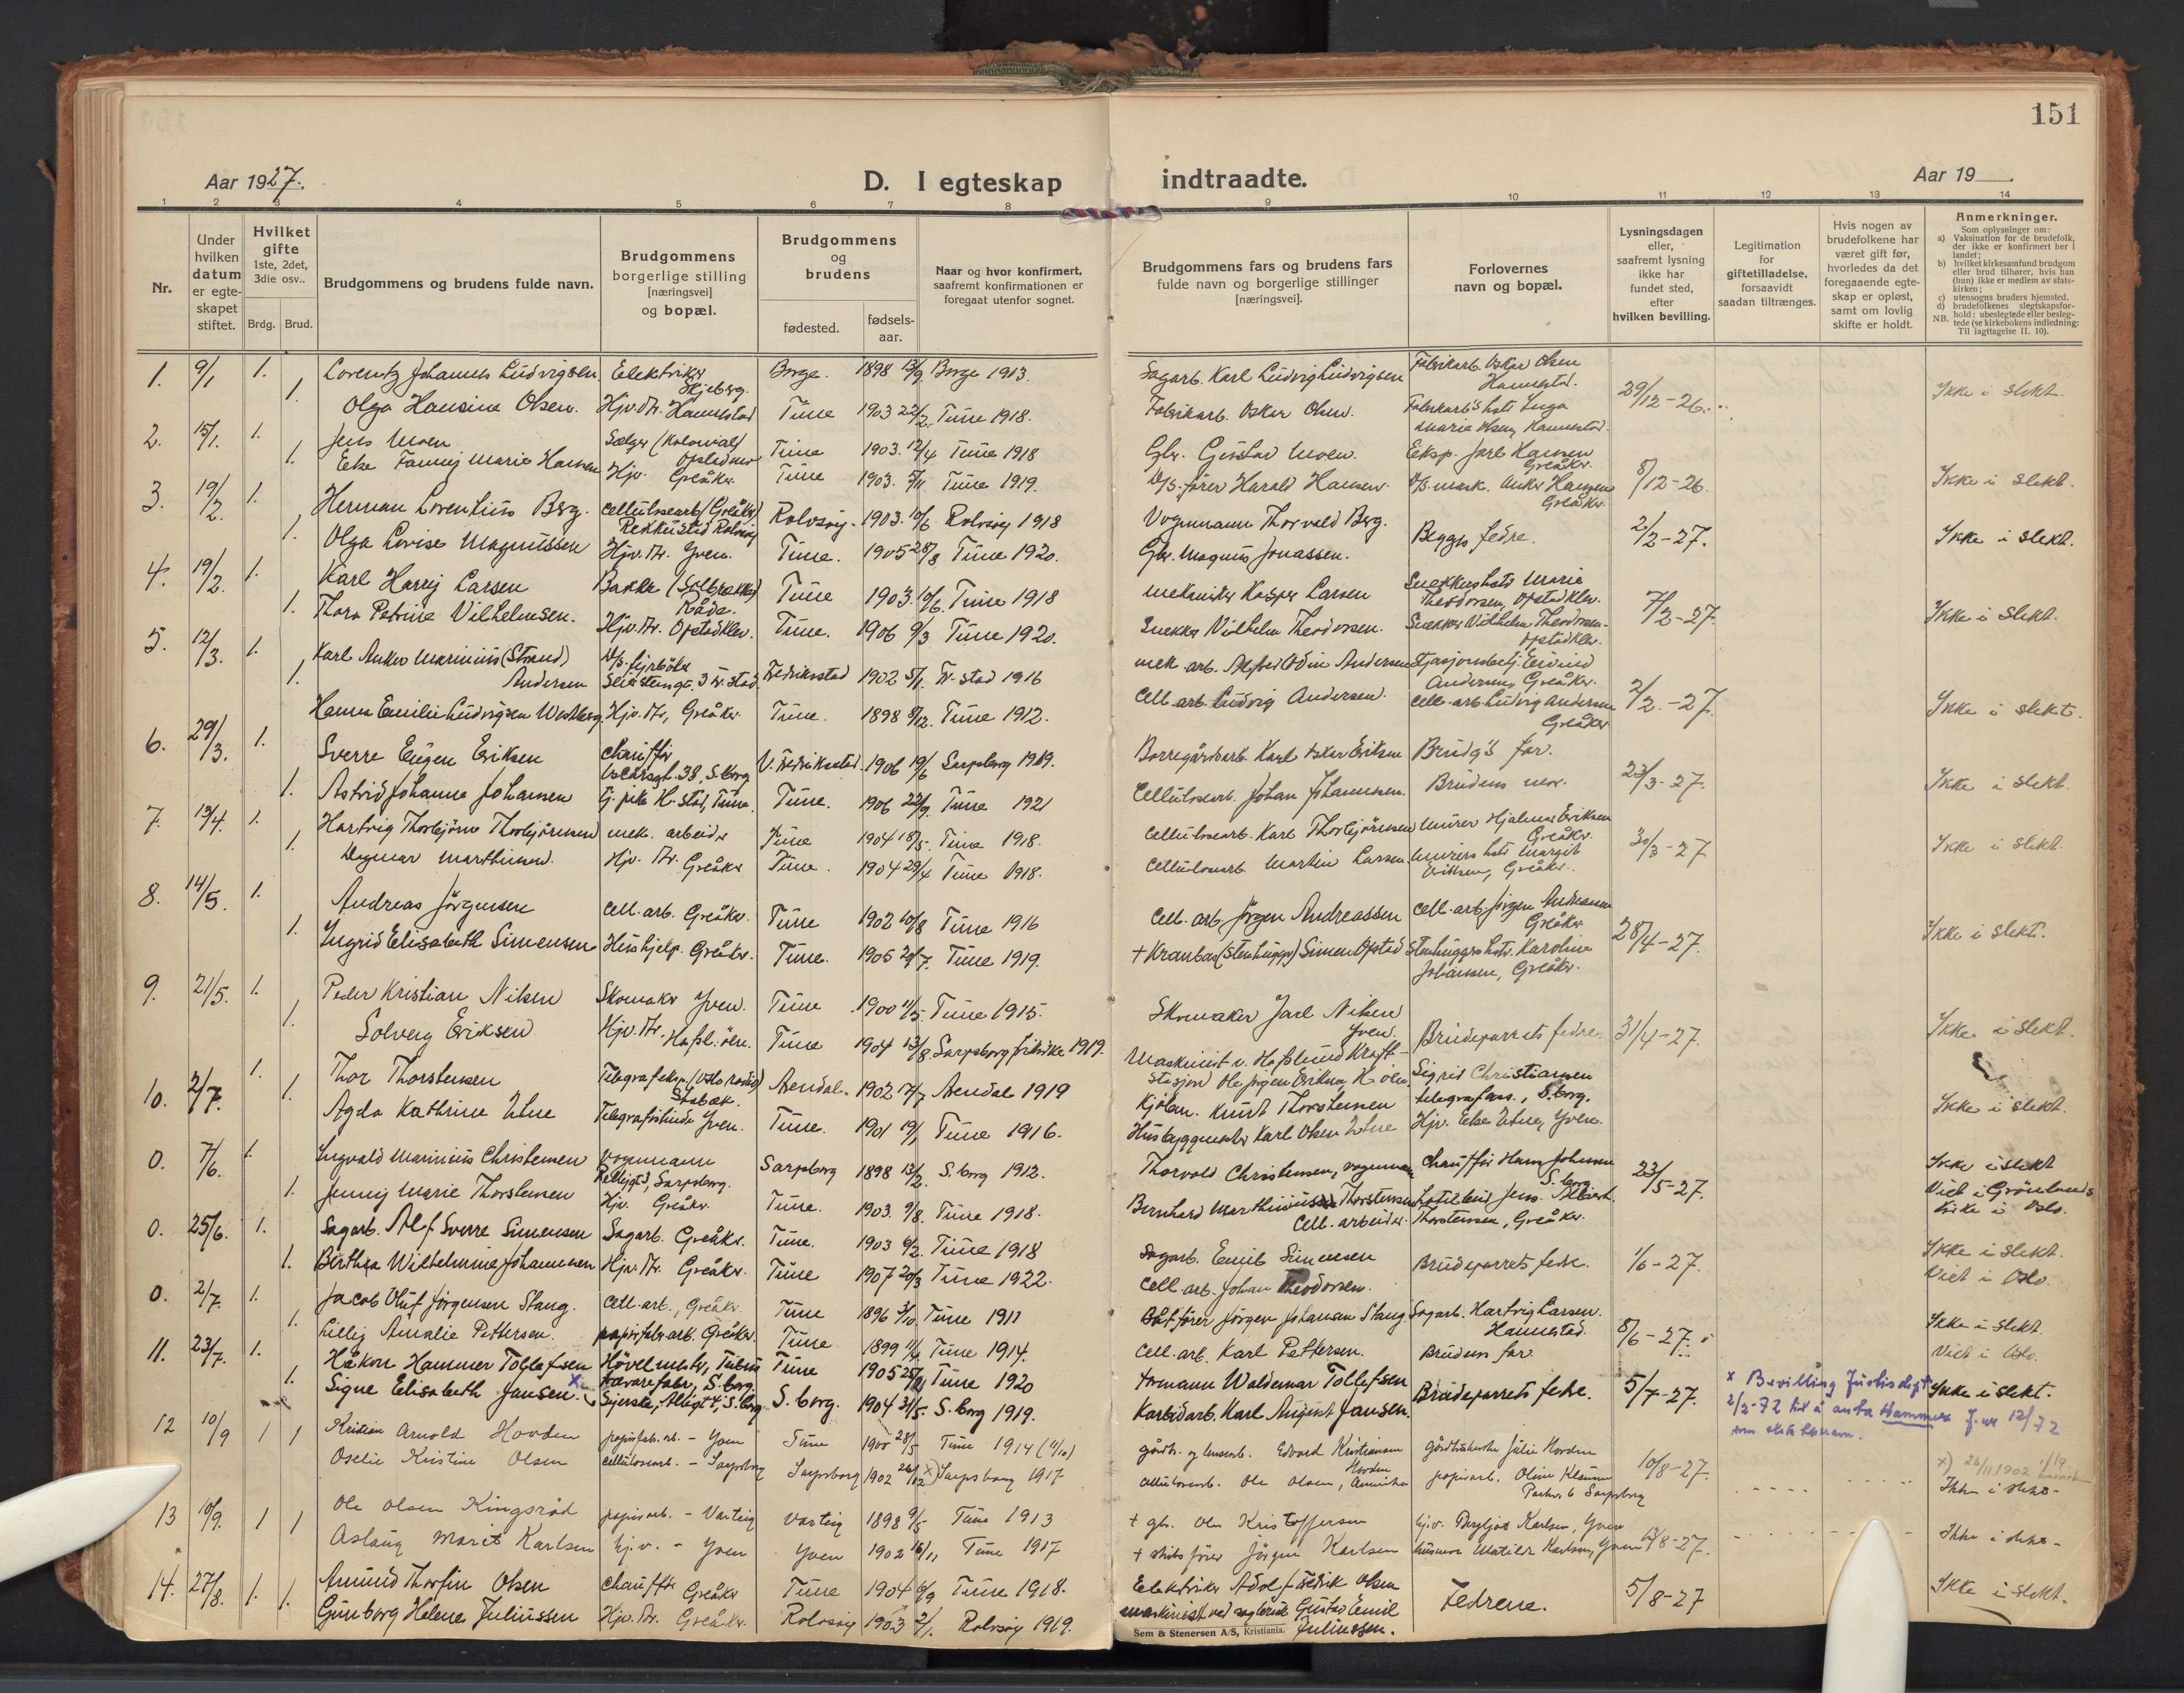 151
Aar 1927.
D. I egteskap indtraadte.
Aar 19
1 2 3 4 5 6 7 8 9 10 11 12 13 14
Nr.
Under hvilken datum er egteskapet stiftet.
Hvilket gifte 1ste, 2det, 3die osv..
Brdg. Brud.
Brudgommens og brudens fulde navn.
Brudgommens borgerlige stilling [næringsvei] og bopæl.
Brudgommens og brudens
fødested.
fødsels-aar.
Naar og hvor konfirmert, saafremt konfirmationen er foregaat utenfor sognet.
Brudgommens fars og brudens fars fulde navn og borgerlige stillinger [næringsvei].
Forlovernes navn og bopæl.
Lysningsdagen eller, saafremt lysning ikke har fundet sted, efter hvilken bevilling.
Legitimation for giftetilladelse, forsaavidt saadan tiltrænges.
Hvis nogen av brudefolkene har været gift før, hvorledes da det foregaaende egteskap er opløst, samt om lovlig skifte er holdt.
Anmerkninger.
Som oplysninger om:
a) Vaksination for de brudefolk, der ikke er konfirmert her i landet;
b) hvilket kirkesamfund brudgom eller brud tilhører, hvis han (hun) ikke er medlem av statskirken;
c) utensogns bruders hjemsted.
d) brudefolkenes slegtskapsforhold: ubeslegtede eller beslegtede (se kirkebokens indledning: Til iagttagelse II. 10).
NB.
1. 9/1 1. Lorentz Johannes Ludvigsen Elektriker Skjeberg. Borge. 1898 13/9 Borge 1913. Sagarb. Karl Ludvig Ludvigsen Fabrikarb. Oskar Olsen Hannestad. 29/12-26. Ikke i slekt.
1. Olga Hansine Olsen. Hjv. dtr. Hannestad Tune 1903 22/2 Tune 1918. Fabrikarb. Oskar Olsen. Fabrikarb's hstr Inga Marie Olsen, Hannestad.
2. 15/1. 1. Jens Moen Sælger (Kolonial) Opstadmo Tune 1903. 12/4 Tune 1918 Gbr. Gustav Moen. Eksp. Jarl Hansen Greåker. 8/12-26. Ikke i slekt.
1. Else Fanny Marie Hansen Hjv. Greåker Tune 1903. 5/11 Tune 1919. D/S-fører Harald Hansen. D/S mask. Anker Hansen Greåker.
3. 19/2. 1. Herman Lorentius Berg. Cellulosearb (Greåker) Rekkustad Rolvsøy Rolvsøy. 1903. 10/6 Rolvsøy 1918 Vognmann Thorvald Berg. Begges fedre. 2/2-27. Ikke i slekt.
1. Olga Lovise Magnussen Hjv. dtr. Yven. Tune. 1905 28/8 Tune 1920. Gbr. Magnus Jonassen.
4. 19/2. 1. Karl Harry Larsen Råde. Tune 1903. 10/6. Tune 1918 Mekaniker Kasper Larsen Snekkers hstr Marie Theodorsen, Opstadklev. 7/2-27. Ikke i slekt.
1. Thora Petrine Vilhelmsen. Hjv. dtr. Opstadklev. Tune. 1906 9/3 Tune 1920. Snekker Vilhelm Theodorsen. Snekker Vilhelm Theodorsen Opstadklev.
5. 12/3. 1. Karl Anker Marinius (Strand) Andersen D/S-fyrbøter Fredriksstad 1902 5/11. Fr-stad 1916 mek. arb. Alfred Odin Andersen Stasjonsbetj. Eivind Andersen, Greåker. 2/2.-27. Ikke i slekt.
1. Hanna Emilie Ludvigsen Westberg. Hjv. dtr, Greåker. Tune. 1898 8/12. Tune 1912. Cell. arb. Ludvig Andersen. Cell. arb. Ludvig Andersen Greåker
6. 29/3. 1. Sverre Eugen Eriksen Chauffør Oscarsgt. 38, S.borg V. Fredriksstad. 1906 19/6 Sarpsborg 1919. Borregårdarb. Karl Oskar Eriksen Brudg's far. 23/3-27. Ikke i slekt.
1. Astrid Johanne Johansen Tj. pike H.-stad, Tune. Tune. 1906 22/9. Tune 1921 Cellulosearb. Johan Johannesen. Brudens mor.
7. 13/4. 1. Hartvig Thorbjørn Thorbjørnsen mek. arbeider Tune 1904 18/5. Tune 1918. Cellulosearb. Karl Thorbjørnsen Murer Hjalmar Eriksen Greåker. 30/3-27 Ikke i slekt.
1. Dagmar Marthinsen. Hjv. dtr. Greåker Tune. 1904 29/4 Tune 1918. Cellulosearb. Martin Larsen Murers hstr Margit Eriksen, Greåker.
8. 14/5. 1. Andreas Jørgensen Cell. arb. Greåker. Tune 1902 10/8 Tune 1916 Cell. arb. Jørgen Andreassen Cell. arb. Jørgen Andreassen Greåker 28/4-27. Ikke i slekt.
1. Ingrid Elisabeth Simensen Hushjelp. Greåker. Tune. 1905 20/7. Tune 1919. Simen Opstad Stenhuggers hstr. Karoline Johansen, Greåker.
9. 21/5. 1. Peder Kristian Nilsen Skomaker Yven. Tune 1900 11/5. Tune 1915. Skomaker Jarl Nilsen Yven. Brudeparrets fedre. 31/4-27. Ikke i slekt.
1. Solveig Eriksen Hjv. dtr. Hafsl. ølen. Tune 1904 13/8 Sarpsborg frikirke 1919. Maskinist v. Hafslund Kraftstasjon Ole Jørgen Eriksen, H. ølen
10. 2/7. 1. Thor Thorstensen Telegrafeksp. (Oslo radio) Stabæk. Arendal. 1902 17/7 Arendal 1919 Kjøbm. Knudt Thorstensen Sigrid Christiansen telegrafass., S.borg. Ikke i slekt.
1. Agda Kathrine Utne Telegrafistinde Yven. Tune. 1901 19/1 Tune 1916. Husbyggmester Karl Olsen Utne Hjv. Else Utne, Yven.
0. 7/6. 1. Ingvald Marinius Christensen Vognmann Sarpsborg. Sarpsborg 1898 13/2. S.borg 1912. Thorvald Christensen, vognmann Chauffør Hans Johnsen S.borg. 23/5-27. Ikke i slekt Viet i Grønlands kirke i Oslo.
1. Jenny Marie Thorstensen Hjv. Greåker. Tune. 1903. 9/8. Tune 1918. Bernhard Marthinius Thorstensen Cell. arbeider. Jens Albert Thorstensen, Greåker.
0. 25/6. 1. Sagarb. Alf Sverre Simensen Sagarb. Greåker. Tune. 1903 6/2. Tune 1918 Sagarb. Emil Simensen Brudeparrets fedre. 1/6-27. Ikke i slekt. Viet i Oslo.
1. Birthea Wilhelmine Johannesen Hjv. dtr. Greåker. Tune 1907 20/3 Tune 1922. Cell. arb. Johan Theodorsen.
0. 2/7. 1. Jacob Oluf Jørgensen Stang. Cell. arb., Greåker. Tune 1896 3/10. Tune 1911 Jørgen Johansen Stang Sagarb. Hartvig Larsen. Hannestad. 8/6-27. Ikke i slekt. Viet i Oslo.
1. Lilly Amalie Pettersen. papirfabr. arb. Greåker. Tune 1899 11/4 Tune 1914. Cell. arb. Karl Pettersen. Brudens far.
11. 23/7. 1. Håkon Hammer Tollefsen Høvelmestr, trævarefabr, S.borg. Tune 1905 Tune 1920 Formann Waldemar Tollefsen Brudeparrets fedre. 5/7-27. Ikke i slekt.
x Bevilling Justisdept 2/2-72 til å anta Hammer J.nr 12/72 som ekte
1. Signe Elisabeth Jansen. x Syerske, S.borg S.borg. 1904 31/5. S.borg 1919. Karbidarb. Karl August Jansen.
12 10/9 1 1 Kristian Arnold Hovden papirfab. arb. - Yven Tune 1900 28/5 Tune 1914 (4/10) Edvard Kristiansen Hovden Julie Hovden 10/8-27. x) 26/11 1902
Oselie Kristine Olsen cellulosearb. - Sarpsborg Sarpsborg 1902 26/12 x) Sarpsborg 1917 cellulosearb. Ole Olsen, Amerika papirarb. Sarpsborg Ikke i slekt-
13 10/9. 1 1 Ole Olsen Kingsrød papirarb. - Varteig Varteig 1898 9/5 Tune 1913 + gbr. Ole Kristoffersen hj.v. Bergljot Karlsen, Yven 13/8-27. Ikke i slekt-
Aslaug Marit Karlsen hj.v. - Yven Yven 1902 16/11 Tune 1917 + skibsfører Jørgen Karlsen husmor Matilde Karlsen, Yven
14. 27/8. 1. 1. Amund Thorfin Olsen Chauffør Greåker Tune 1904 6/9 Tune 1918. Elektriker Adolf Fredrik Olsen Fedrene. 5/8-27 Ikke i slekt.
Gunborg Helene Juliussen Hjv. dtr. Greåker. Rolvsøy 1903 2/1. Rolvsøy 1919. maskinist ved Gustav Emil Juliussen.
Sem & Stenersen A/S, Kristiania.